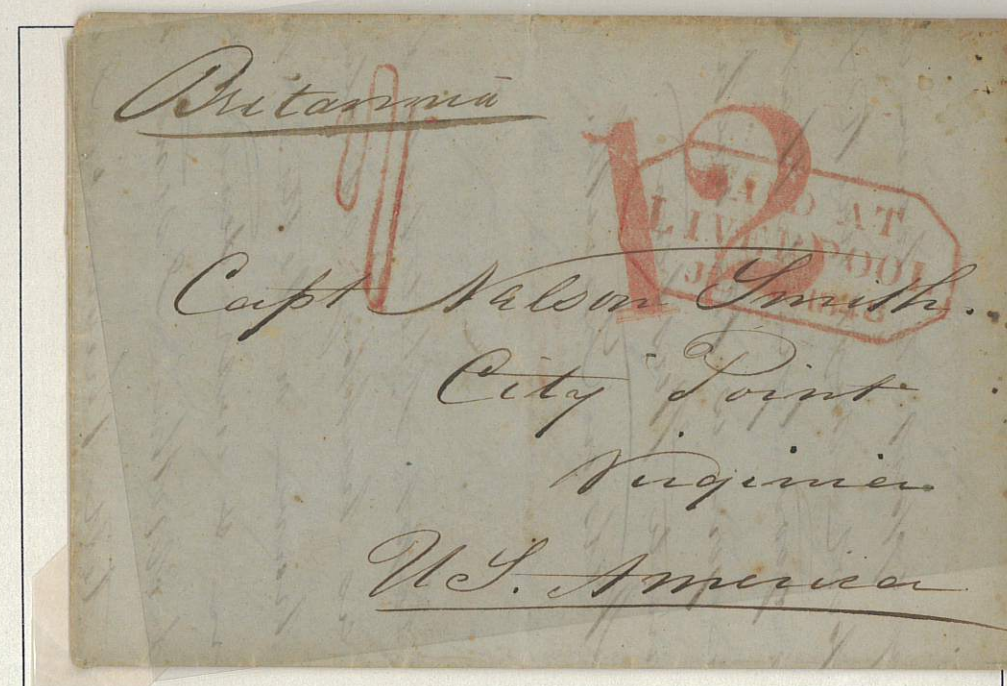 Britannia
12
PAID AT
LIVERPOOL
Capt Nelson Smith.
City Point
Virginia
U S. America